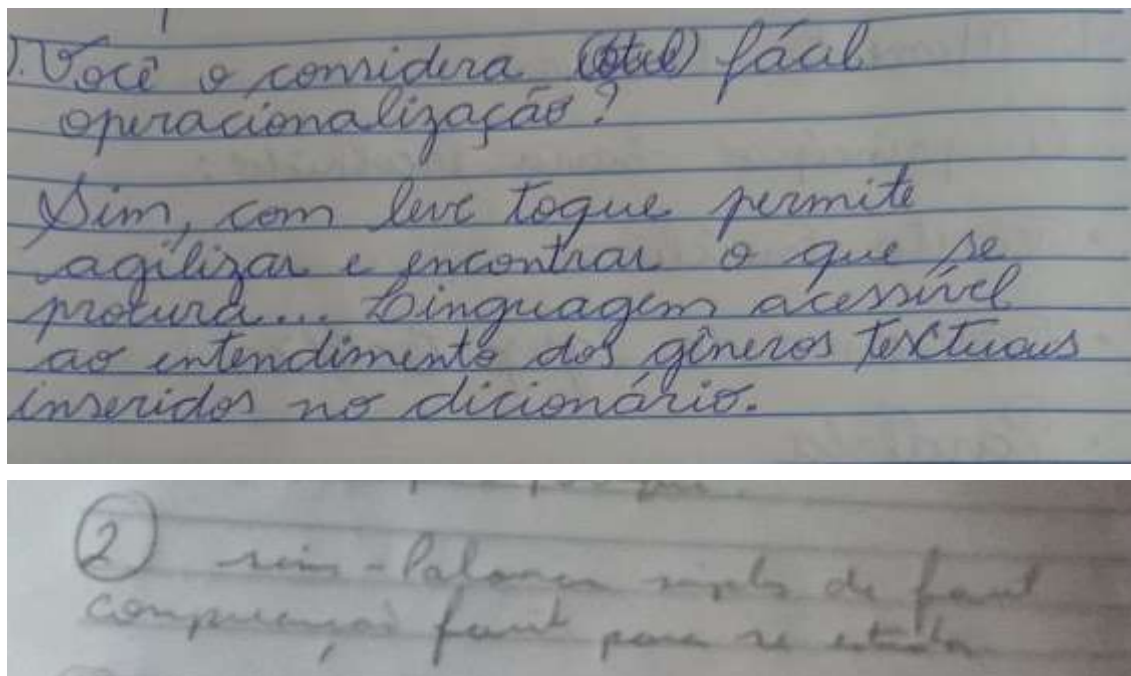 ). Você o considera (útil) fácil
operacionalização?
Sim, com leve toque permite
agilizar e encontrar o que se
procura... Linguagem acessível
ao entendimento dos gêneros textuais
inseridos no dicionário.
2 sim - Palavra simples de facil
compreensão facil para se estudar